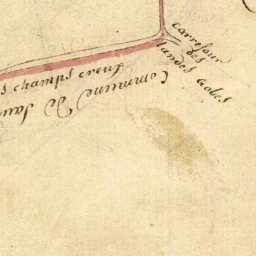 Carrefour
des
landes Gobes
s champs creux
Commune De Sau